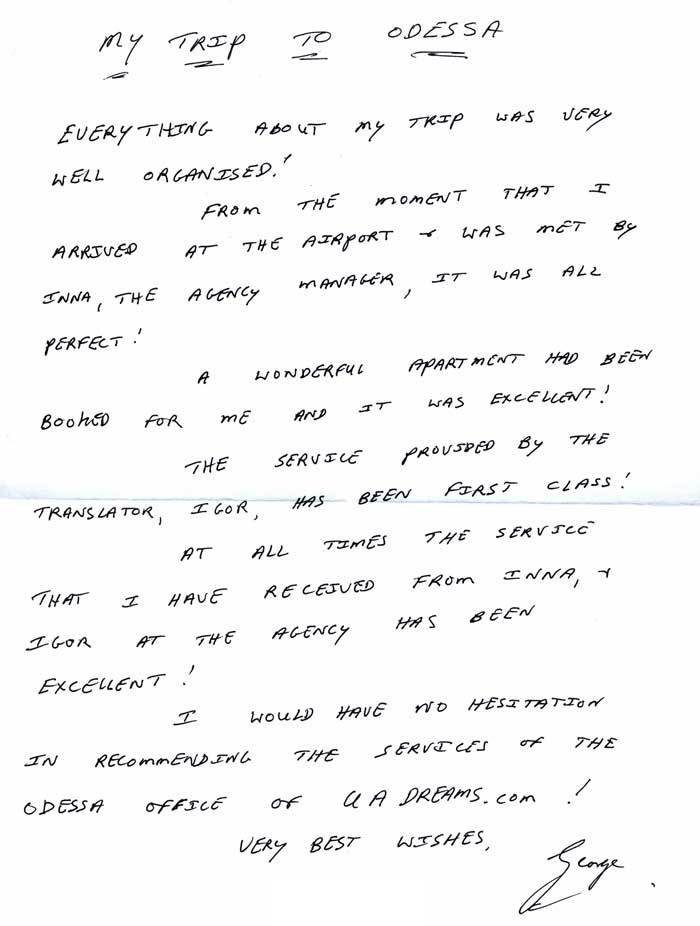 MY TRIP TO ODESSA
EVERYTHING ABOUT MY TRIP WAS VERY
WELL ORGANISED!
FROM THE MOMENT THAT I
ARRIVED AT THE AIRPORT & WAS MET BY
INNA, THE AGENCY MANAGER, IT WAS ALL
PERFECT!
A WONDERFUL APARTMENT HAD BEEN
BOOKED FOR ME AND IT WAS EXCELLENT!
THE SERVICE PROVIDED BY THE
TRANSLATOR, IGOR, HAS BEEN FIRST CLASS!
AT ALL TIMES THE SERVICE
THAT I HAVE RECEIVED FROM INNA, &
IGOR AT THE AGENCY HAS BEEN
EXCELLENT!
I WOULD HAVE NO HESITATION
IN RECOMMENDING THE SERVICES OF THE
ODESSA OFFICE OF UA DREAMS.COM !
VERY BEST WISHES,
George.